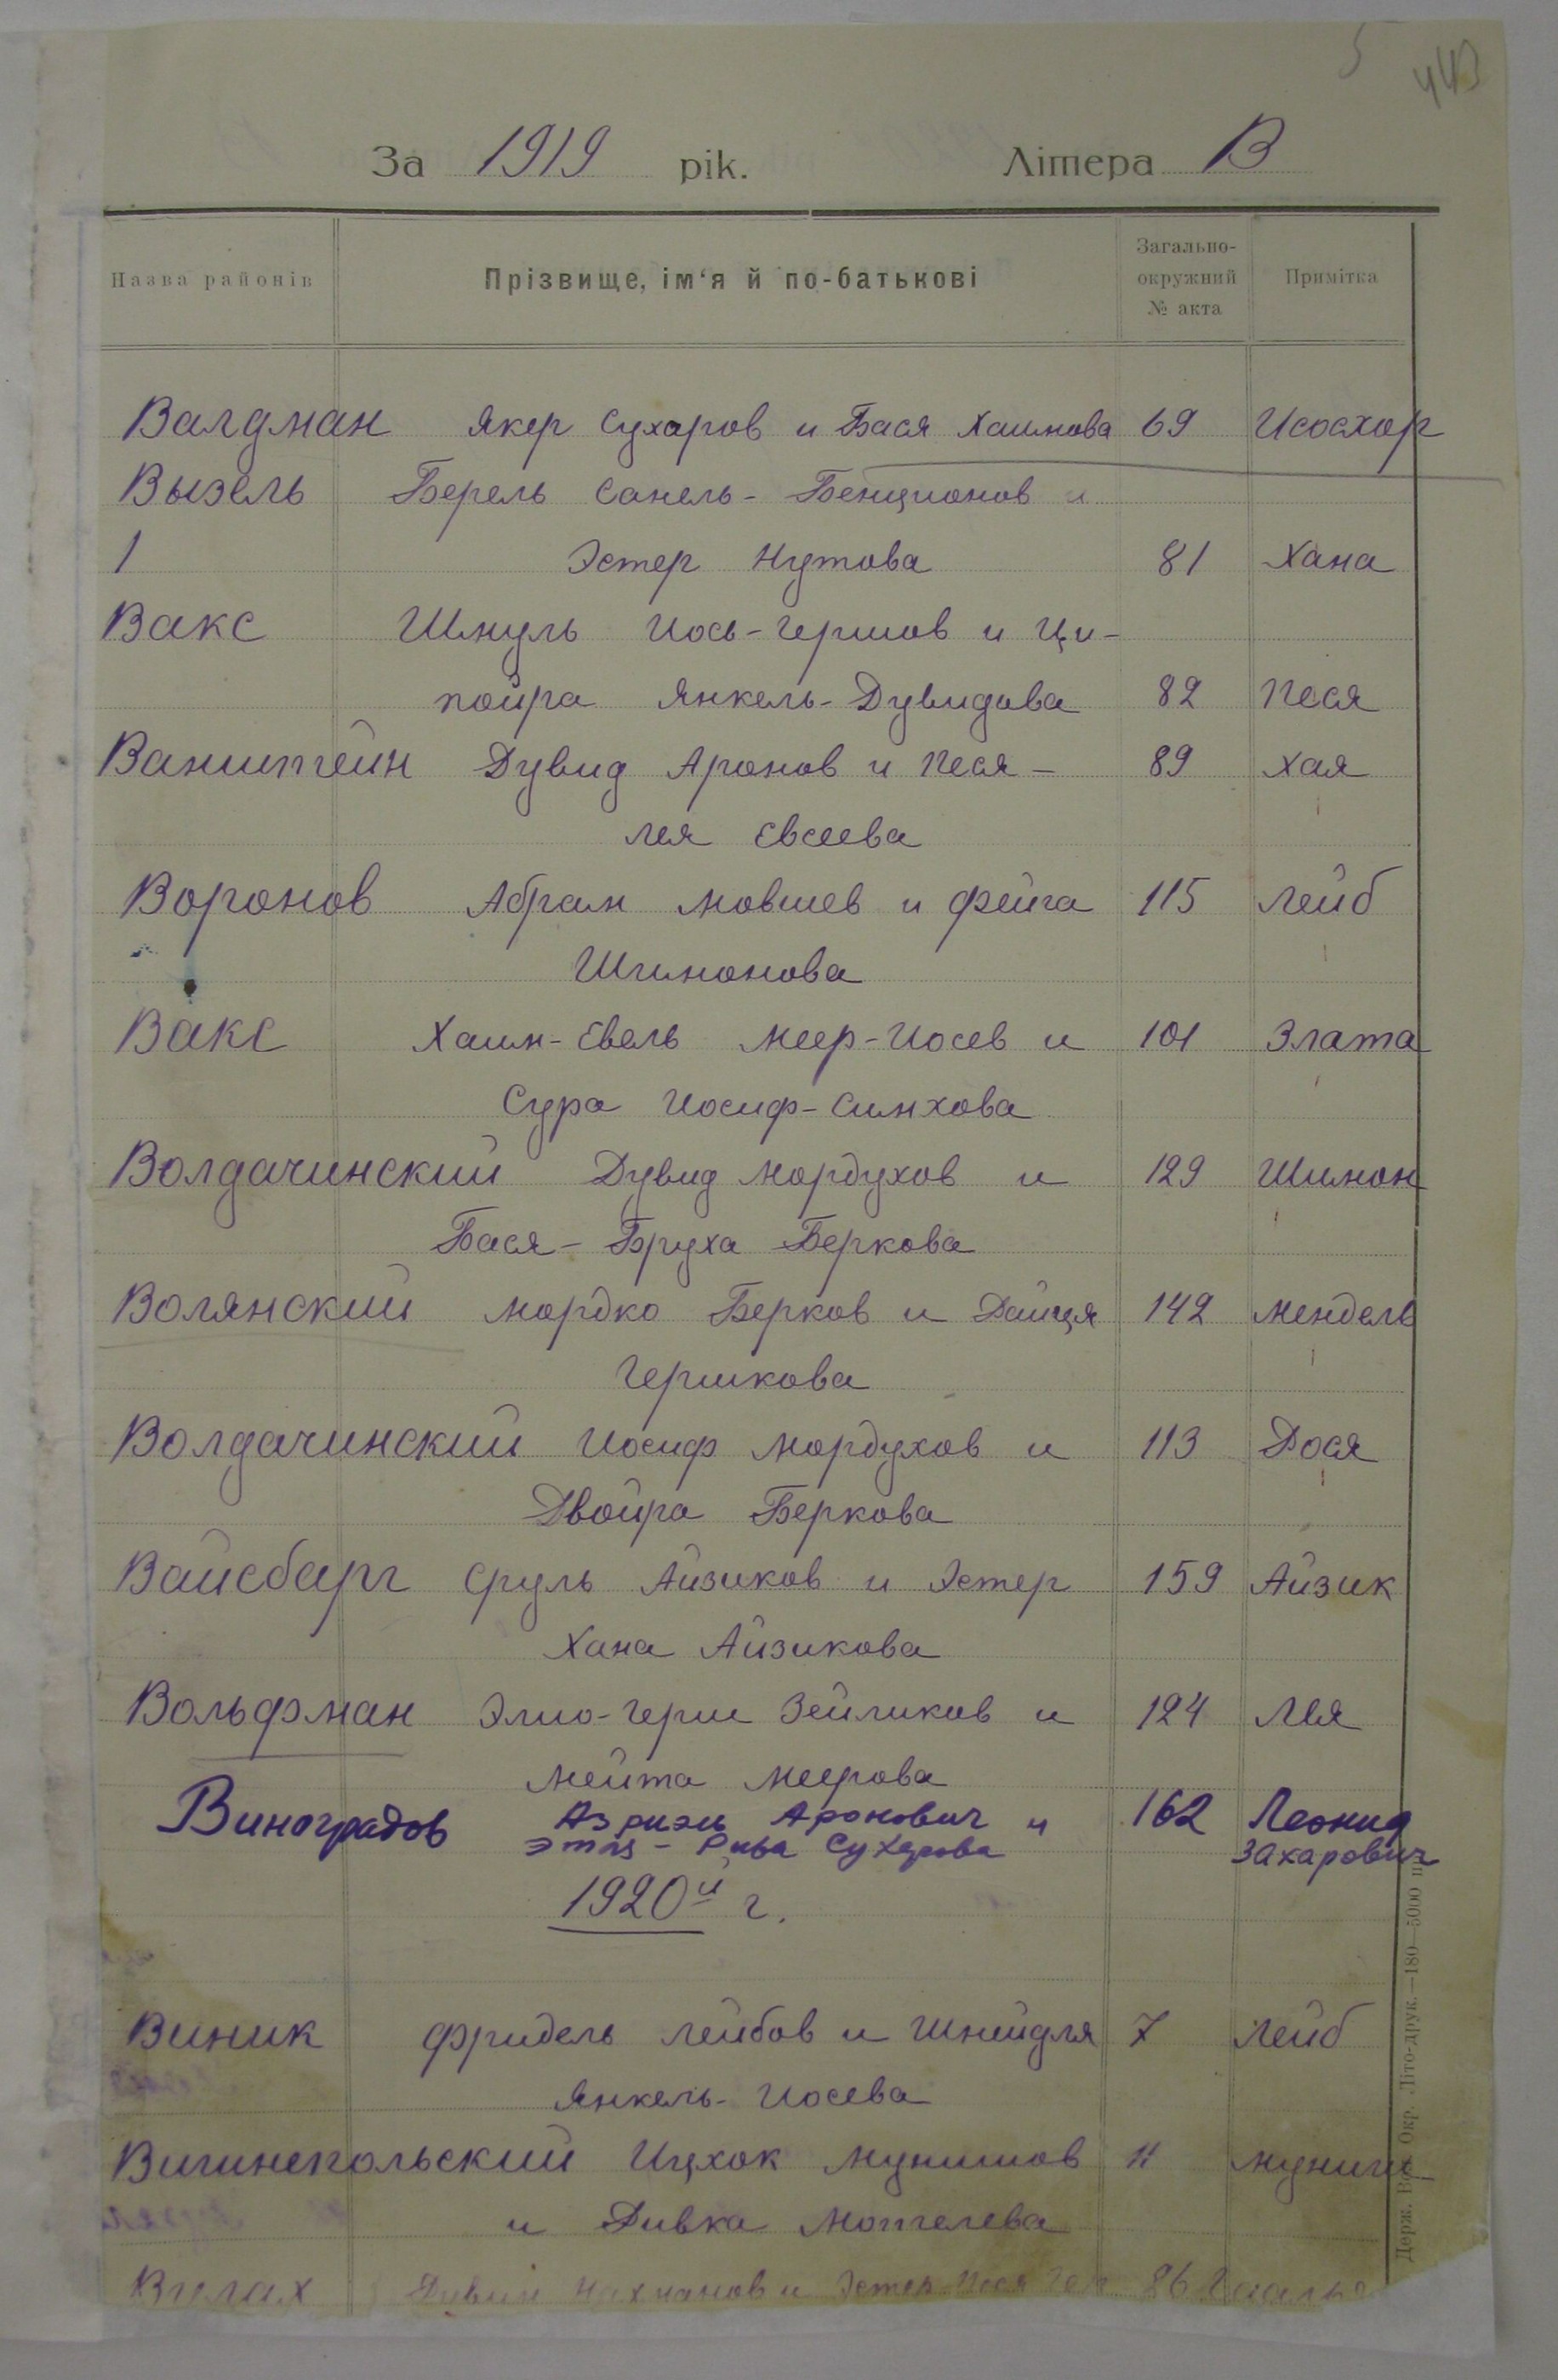 5 443
За 1919 рік. Літера В
Назва районів Прізвище, ім‘я й по-батькові Загально-окружний № акта Примітка
Валдман Якер Сухаров и Бася Хаимова 69 Исосхор
Вызель Берель Санель-Бенционов и
Эстер Нутова 81 Хана
Вакс Шмуль Иось-Гершов и Ци-
пойра Янкель-Дувидова 82 Песя
Ванштейн Дувид Аронов и Песя- 89 Хая
Лея Евсеева
Воронов Абрам Мовшев и Фейга 115 Лейб
Шимонова
Вакс Хаим-Евель Меер-Иосев и 101 Злата
Сура Иосиф-Симхова
Волдачинский Дувид Мордухов и 129 Шимон
Бася-Бруха Беркова
Волянский Мордко Берков и Раиця 142 Мендель
Гершкова
Волдачинский Иосиф Мордухов и 113 Рося
Двойра Беркова
Вайсбарг Сруль Айзиков и Эстер 159 Айзик
Хана Айзикова
Вольфман Элио-Герш Зейликов и 124 Лея
Мейта Меерова
Виноградов Азриэль Аронович и 162 Леонид
Рива Сухарова Захарович
1920й г.
Виник Фридель Лейбов и Шнейдля 7 Лейб
Янкель-Иосева
Вишнепольский Ицхок Мунишов 11 Муниш
и Ривка Мотелева
Нахманов и Эстер 86
Держ. Окр. Літо-друк.—180—5000 п.